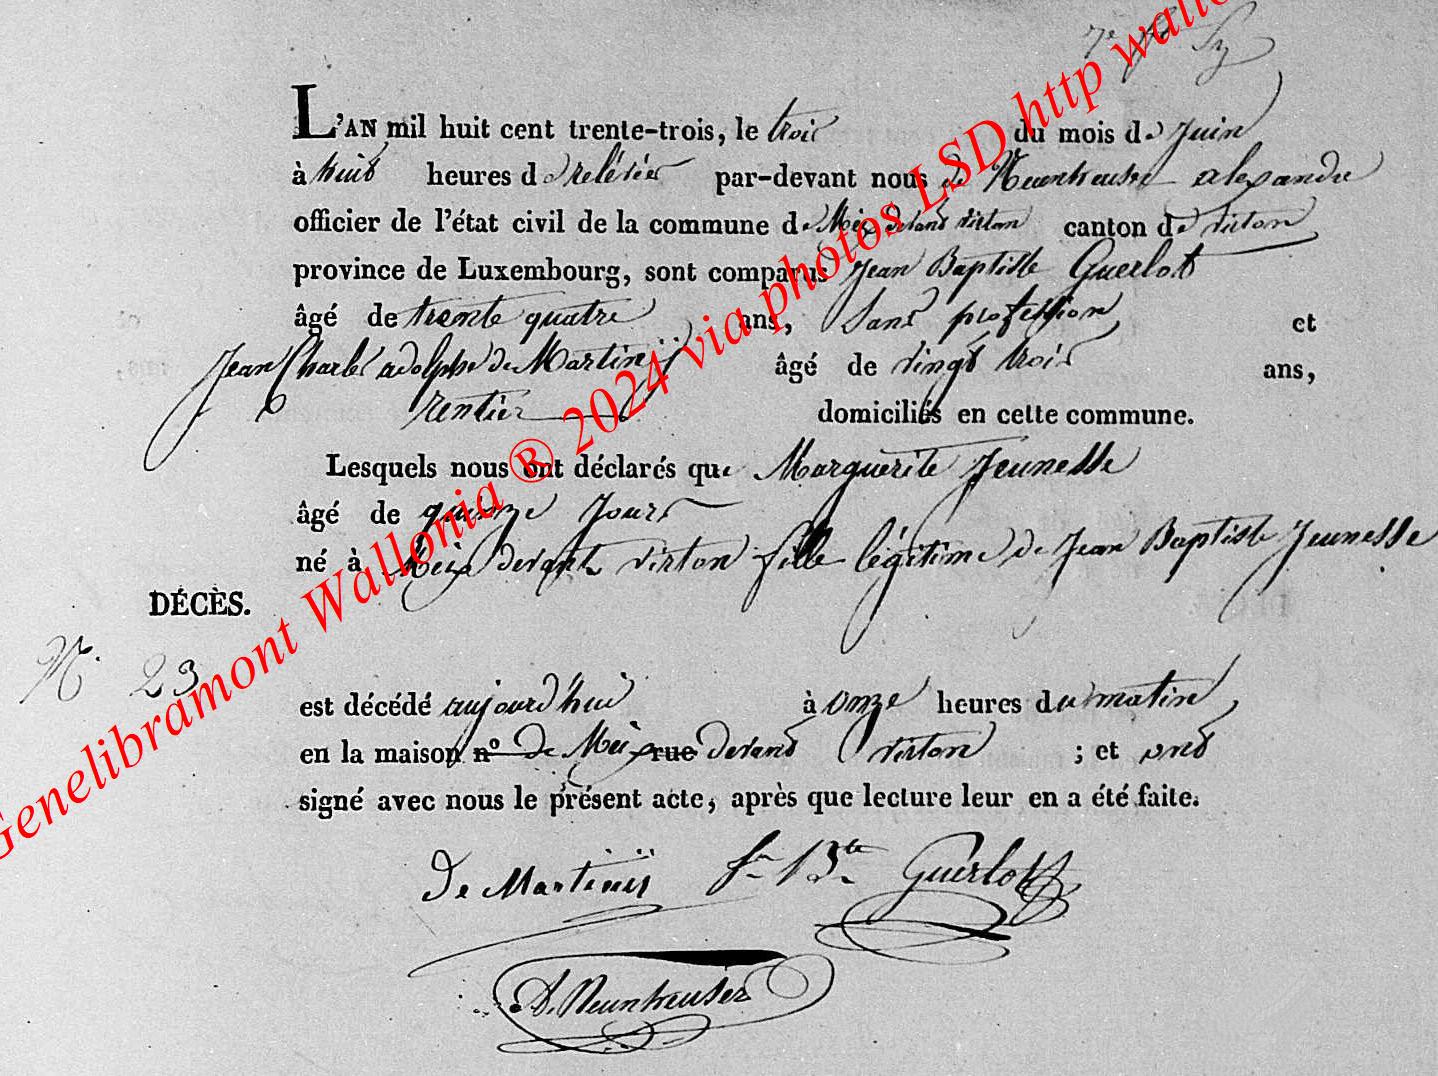 L'AN mil huit cent trente-trois, le trois du mois de Juin
à huit heures de relévée par-devant nous de Neunheuser alexandre
officier de l'état civil de la commune de Meix devant virton canton de virton
province de Luxembourg, sont comparus Jean Baptiste Guerlot
âgé de trente quatre ans, Sans profession et
Jean Charles adolphe de Martinÿ âgé de vingt trois ans,
rentier domiciliés en cette commune.
Lesquels nous ont déclarés que Marguerite Jeunesse
âgé de quinze Jours
né à Meix devant virton fille légitime de Jean Baptiste Jeunesse
DÉCÈS.
N° 23
est décédé aujourd'hui à onze heures du matin
en la maison n° de Meix rue devant virton ; et ont
signé avec nous le présent acte, après que lecture leur en a été faite.
De Martiniÿ Jn Bte Guerlot
A. Neunheuser
Genelibramont Wallonia ® 2024 via photos LSD http wall